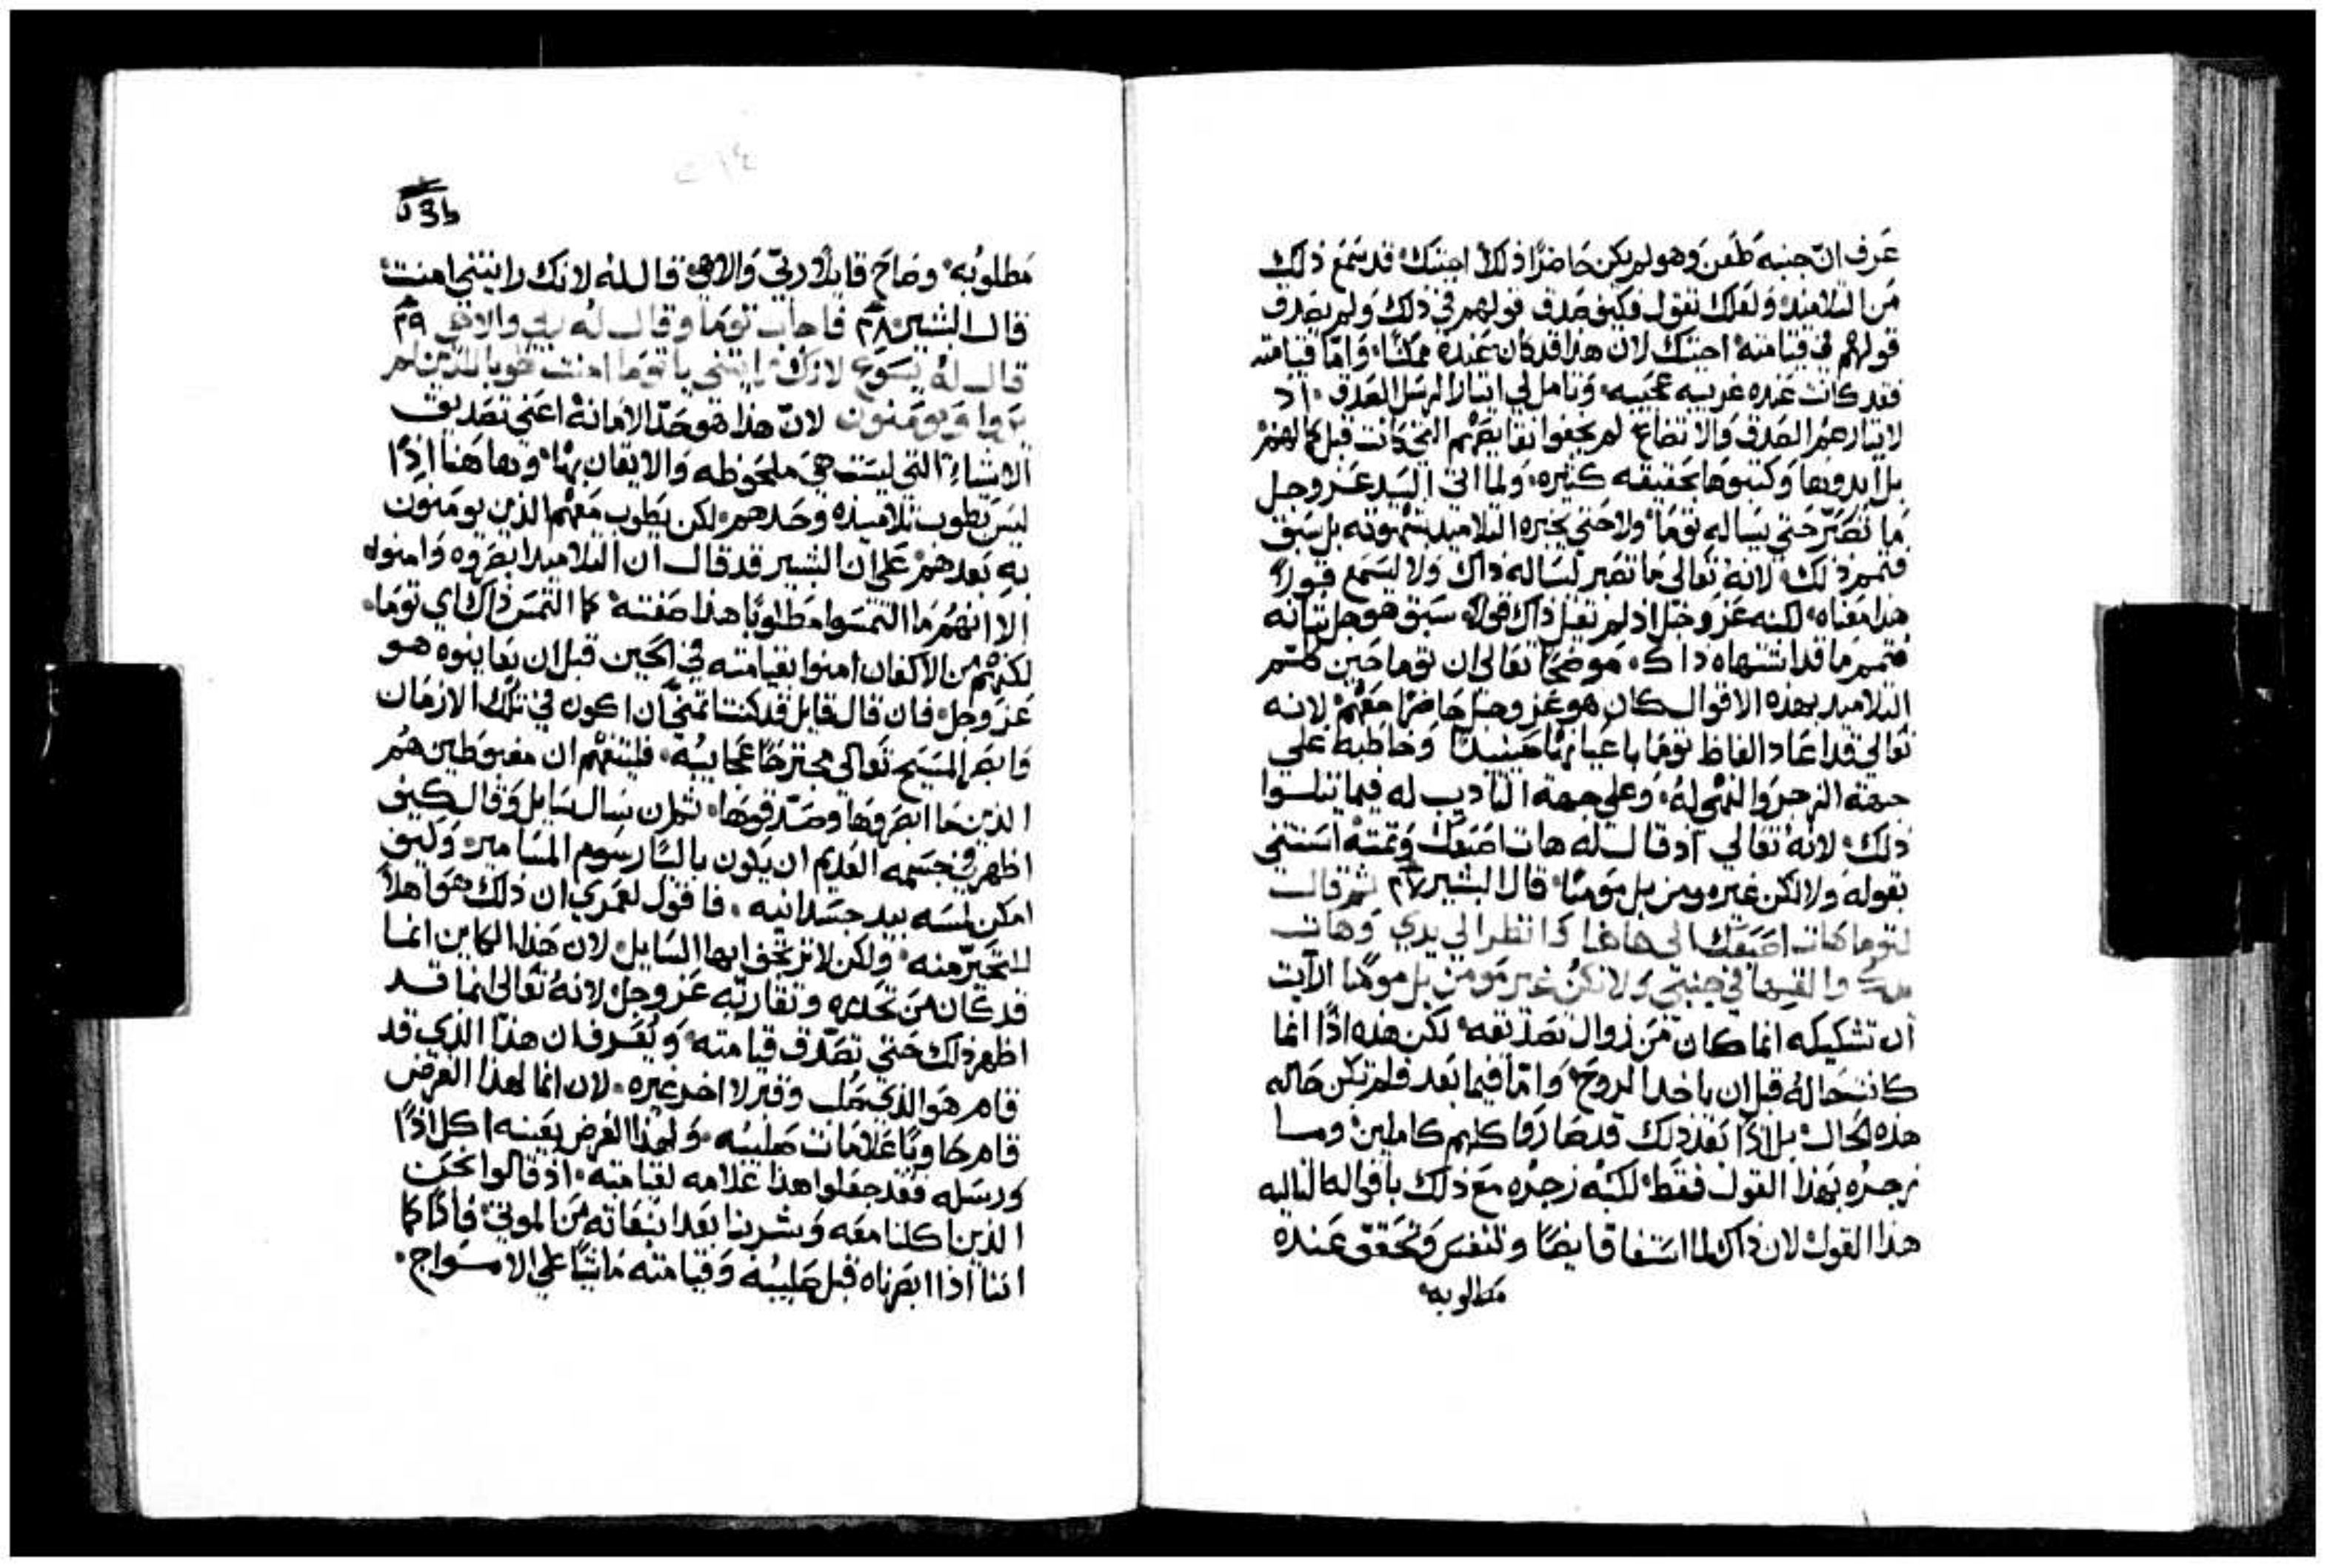 عَرف ان جنبه طُعن وهو لم يكن حَاضرًا ذلك اجبتك قد سَمع ذلك
من التلاميذ ولعلك تقول فكيف صَدق قولهم في ذلك ولم يصَدق
قولهم في قيامته اجبتك لان هذا قد كان عَنده ممكنًا وَامّا قيامته
فقد كانت عَنده غريبه عجيبه وتامل لي ايثار الرسَل الصَدق اذ
لايثارهم الصَدق وَالاتضاع لم يخفوا نقايصَهم التي كانت قبل كمالهم
بل ابدوها وكتبوها بحقيقه كثيره ولما اتى السَيد عَز وجل
مَا تصَبّر حَتى يسَاله توما ولا حَتى يخبره التلاميذ بشهوته بل سَبق
فتمم ذلك لانه تَعالى مَا تصَبر ليسَاله ذاك ولا ليسمع قولاً
هذا مَعناه لكنه عَز وجل اذ لم يقل ذاك قولاً سَبق هو جل ثنائه
فتمم مَا قد اشتهاه ذاك موضحًا تعَالى ان توما حَين كلم
التلاميذ بهذه الاقوال كان هو عَز وجل حَاضرًا مَعهم لانه
تَعالى قد اعَاد الفاظ توما باعَيانها حَينيذ وخاطبه على
جهة الزجر والنهي له وعلى جهة التاديب له فيما يتلوا
ذلك لانه تعَالى اذ قال له هات اصَبعَك وَتمته استثنى
بقوله ولا تكن غير مومن بل مومنًا قال البشير ٢٧ ثم قال
لتوما هات اصَبعَك الى هاهنا وَانظر الى يدي وَهات
يدك والقيها في جنبي وَلا تكن غير مَومن بل مومنًا الآيت
ان تشكيكه انما كان مَن زوال تصَديقه لكن هذه اذًا انما
كانت حَاله قبل ان ياخذ الروح وَامّا فيما بَعد فلم تكن حَاله
هذه الحَال بل اذًا بَعد ذلك قد صَاروا كلهم كاملين ومَا
زجره بهذا القول فقط لكنه زجره مَع ذلك باقواله التاليه
هذا القول لان ذاك لما استفاق ايضًا وتنفسَ وَتحَقق عَنده
مَطلوبه
مَطلوبُه وصَاحَ قايلاً ربّي وَالاهي قال له لانك رايتني امنت
قال البشير ٢٨ فاجاب توما وقال له ربي والاهي ٢٩
قال لهُ يسَوع لانك رايتني يا توما امنت طوبا للذين لم
يروا وَيومَنون لانّ هذا هو حَدّ الامَانة اعَني تصَديق
الاشياء التي ليسَت هيَ ملحَوظه وَالايقان بها وهاهَنا اذًا
ليسَ يطوب تلاميذه وحَدهم لكن يَطوب مَعهم الذين يومَنون
به بَعدهم عَلى ان البشير قد قال ان التلاميذ ابصَروه وَامنوا
الا انهُم مَا التمسَوا مَطلوبًا هذا صَفته كما التمسَ ذاك اي توما
لكنهم مَن الاكفان امنوا بقيامته في الحَين قبل ان يَعاينوه هو
عَز وجل فان قال قايل قد كنت اتمنى ان اكون في تلك الازمَان
وَابصَر المسَيح تَعالى مجترحًا عَجايبه فليتفهم ان مغبوطين هُم
الذين مَا ابصَروها وصَدّقوها ثم ان سَال سَايل وَقال كيف
اظهر في جسَمه العَديم ان يَكون باليًا رسَوم المسَامير وكيف
امكن لمسَه بيد جسَدانيه فاقول لعَمري ان ذلك هَو اهلاً
للتحَيّر منه ولكن لا ترتجف ايها السَايل لان هَذا الكاين انما
قد كان مَن تحَدره وتقاربه عَز وجل لانهُ تَعالى انما قد
اظهر ذلك حَتى تصَدق قيامته وَيُعَرف ان هذا الذي قد
قام هَو الذي صَلب وقبر لا اخر غيره لان انما لهذا الغرض
قام حَاويًا عَلامَات صَلبه وَلهذا الغرض بعَينه اكل اذًا
ورسَله فقد جعَلوا هذا عَلامه لقيامته اذ قالوا نحَن
الذين اكلنا معَه وَشربنا بَعد انبعَاثه مَن الموتى فاذًا كما
اننا اذا ابصَرناه قبل صَلبه وَقيامته مَاشيًا على الامَواج